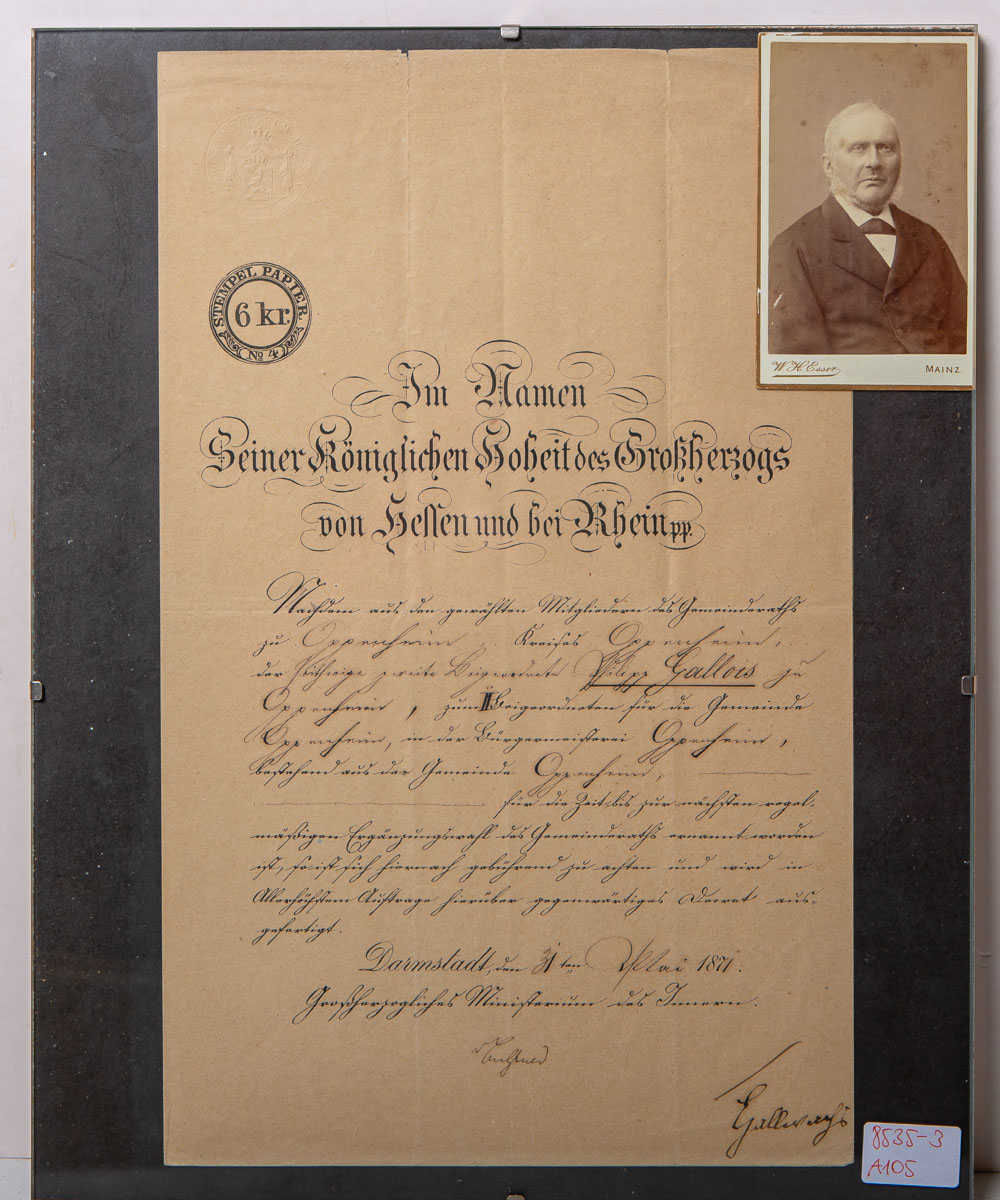 STEMPEL PAPIER
6 kr.
No 4
W. H. Esser
MAINZ.
Im Namen
Seiner Königlichen Hoheit des Großherzogs
von Hessen und bei Rhein pp.
Nachdem aus den gewählten Mitgliedern des Gemeinderaths
zu Oppenheim, Kreises Oppenheim,
der seitherige zweite Beigeordnete Philipp Gallois zu
Oppenheim, zum II Beigeordneten für die Gemeinde
Oppenheim, in der Bürgermeisterei Oppenheim,
bestehend aus der Gemeinde Oppenheim,
für die Zeit bis zur nächsten regel-
mäßigen Ergänzungswahl des Gemeinderaths ernannt worden
ist, so ist sich hiernach gebührend zu achten und wird in
Allerhöchstem Auftrage hierüber gegenwärtiges Decret aus-
gefertigt.
Darmstadt, den 31ten Mai 1871.
Großherzogliches Ministerium des Innern.
Gallwachs
8535-3
A105